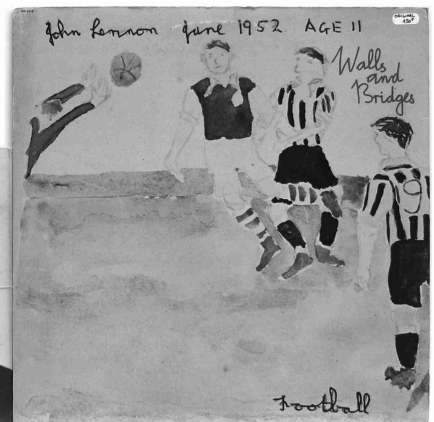 John Lennon June 1952 AGE 11
Walls
and
Bridges
9
Football